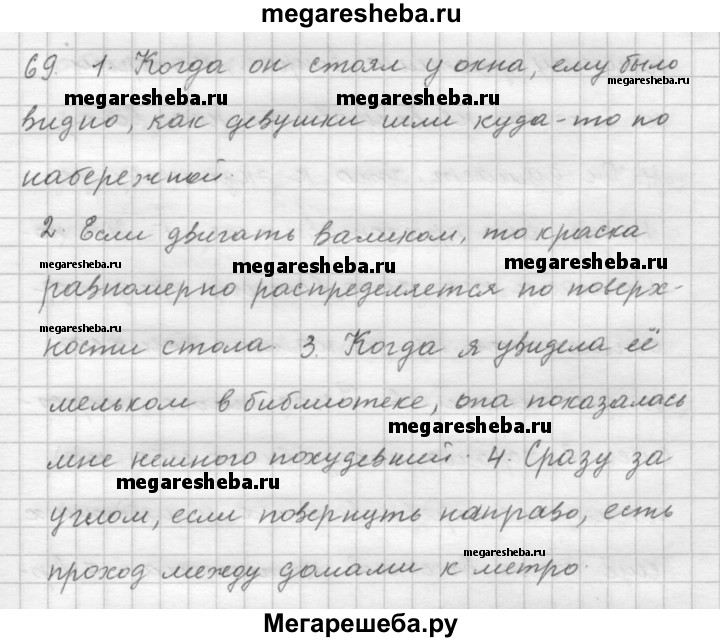 megaresheba.ru
69. 1. Когда он стоял у окна, ему было
megaresheba.ru
megaresheba.ru megaresheba.ru
видно, как девушки шли куда-то по
набережной.
2. Если двигать валиком, то краска
megaresheba.ru megaresheba.ru megaresheba.ru
равномерно распределяется по поверх-
megaresheba.ru
ности стола. 3. Когда я увидела её
мельком в библиотеке, она показалась
megaresheba.ru
мне немного похудевшей. 4. Сразу за
megaresheba.ru
углом, если повернуть направо, есть
megaresheba.ru
проход между домами к метро.
Мегарешеба.ру